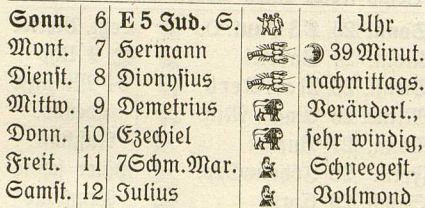 Sonn. 6 E 5 Jud. S. 1 Uhr
Mont. 7 Hermann 39 Minut.
Dienst. 8 Dionysius nachmittags.
Mittw. 9 Demetrius Veränderl.,
Donn. 10 Ezechiel sehr windig,
Freit. 11 7Schm.Mar. Schneegest.
Samst. 12 Julius Vollmond